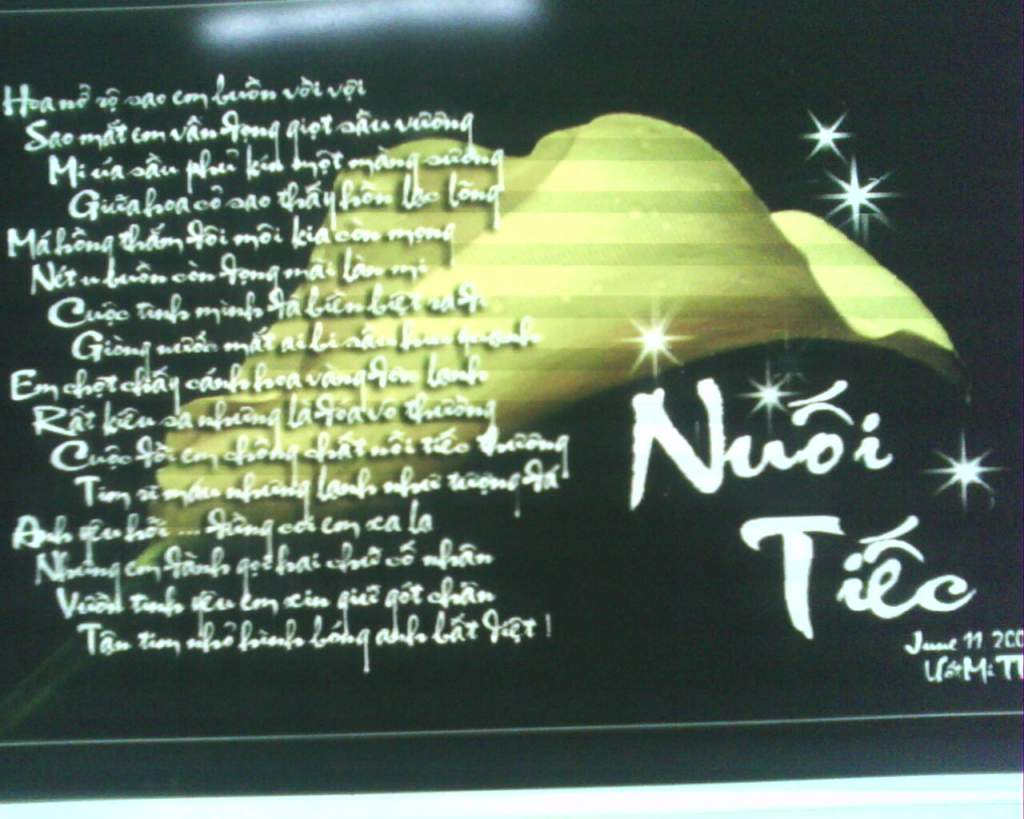 Hoa nở rộ sao em buồn vời vợi
Sao mắt em vẫn đọng giọt sầu vương
Mi úa sầu phủ kín một màng sương
Giữa hoa cỏ sao thấy hồn lạc lõng
Má hồng thắm đôi môi kia còn mọng
Nét u buồn còn đọng mãi làn mi
Cuộc tình mình đã biền biệt ra đi
Giòng nước mắt ai bi sầu hiu quạnh
Em chợt thấy cánh hoa vàng đơn lạnh
Rất kiêu sa nhưng là đóa vô thường
Cuộc đời em chồng chất nỗi tiếc thương
Tim rỉ máu nhưng lạnh như tượng đá
Anh yêu hỡi ... đừng coi em xa lạ
Nhưng em đành gọi hai chữ cố nhân
Vườn tình yêu em xin giữ gót chân
Tận tim nhỏ hình bóng anh bất diệt !
Nuối
Tiếc
June 11, 200
Ướt Mi